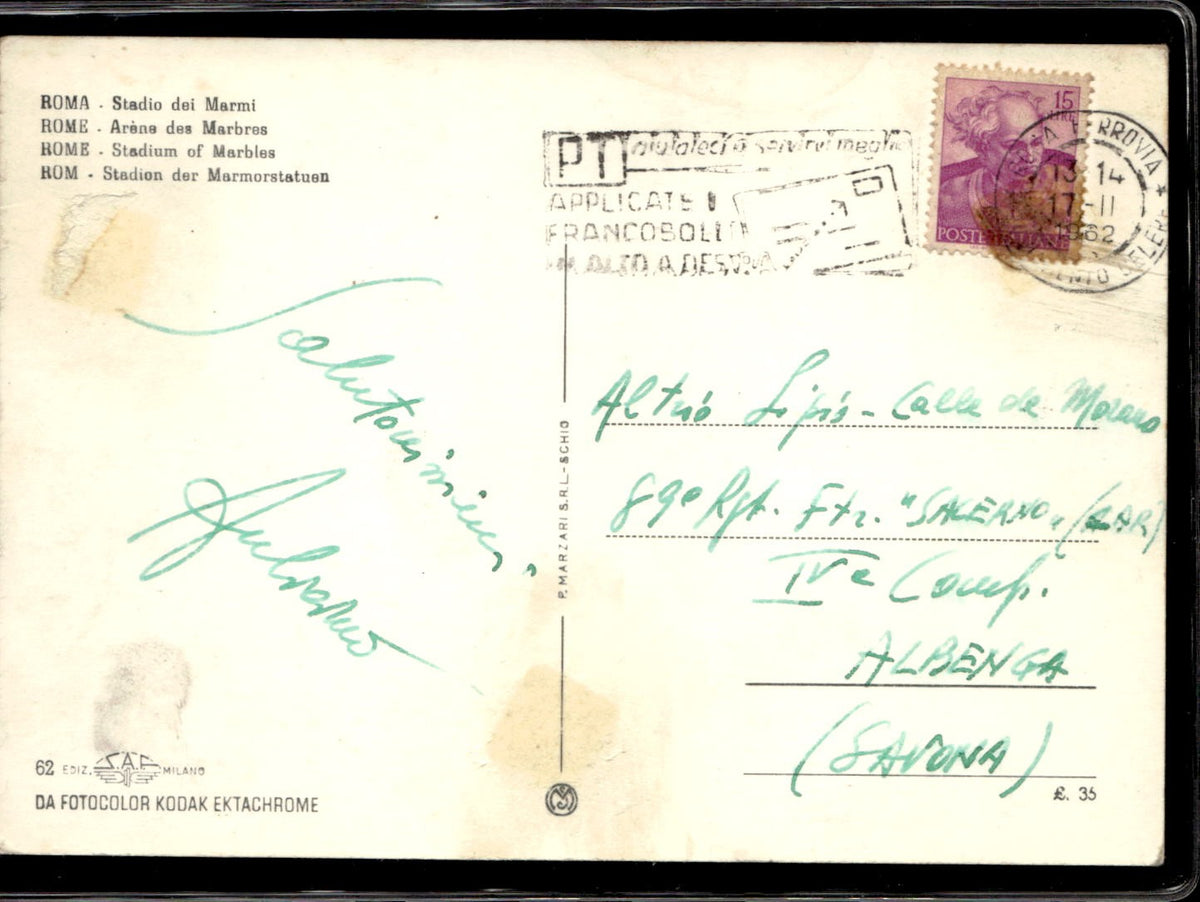 ROMA - Stadio dei Marmi
ROME - Arène des Marbres
ROME - Stadium of Marbles
ROM - Stadion der Marmorstatuen
PT aiutateci a servirvi meglio
APPLICATE I
FRANCOBOLLI
IN ALTO A DESTRA
15
LIRE
POSTE ITALIANE
FERROVIA
13-14
17-II
1962
CELERE
P. MARZARI S.R.L.-SCHIO
89º Rgt. Ftr. "SALERNO" (CAR)
IVª Comp.
ALBENGA
(SAVONA)
£. 35
62 EDIZ. S.A.F. MILANO
DA FOTOCOLOR KODAK EKTACHROME